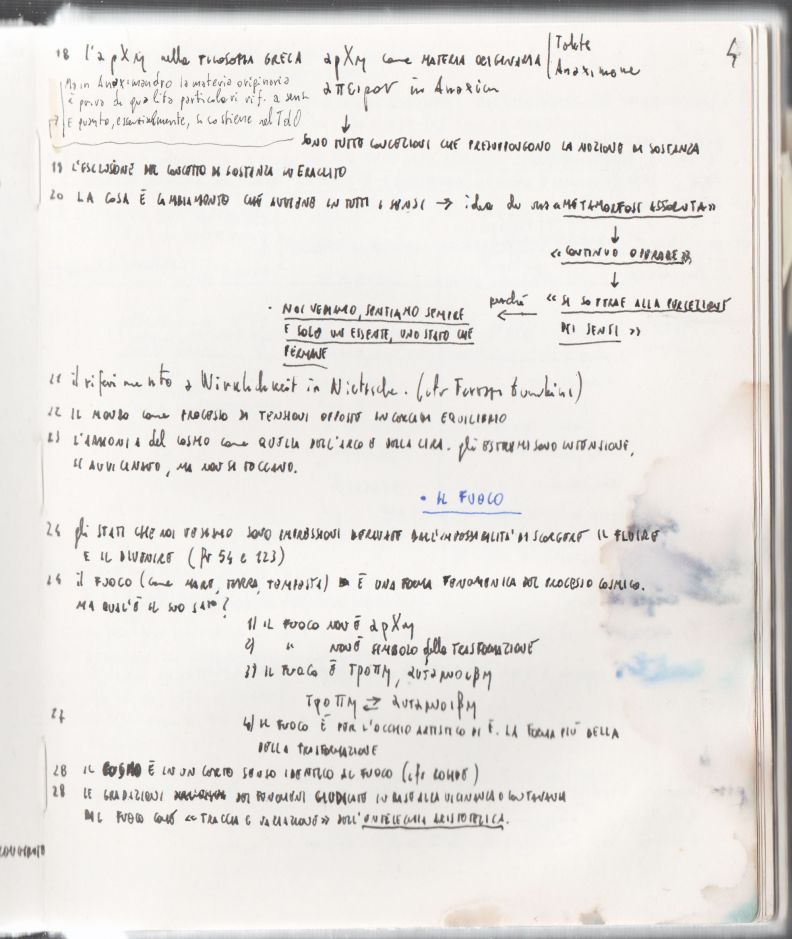 4
18 l'αρΧη nella FILOSOFIA GRECA αρΧη come MATERIA ORIGINARIA | Talete
Anaximene
απειρον in Anaxim
Ma in Anaximandro la materia originaria
è priva di qualità particolari rif. a sensi
E questo, essenzialmente, si sostiene nel TdO
↓
SONO TUTTE CONCEZIONI CHE PRESUPPONGONO LA NOZIONE DI SOSTANZA
19 L'ESCLUSIONE DEL CONCETTO DI SOSTANZA IN ERACLITO
20 LA COSA È CAMBIAMENTO CHE AVVIENE IN TUTTI I SENSI → idea di una «METAMORFOSI ASSOLUTA»
↓
«CONTINUO OPERARE»
↓
perché ← «SI SOTTRAE ALLA PERCEZIONE
DEI SENSI»
· NOI VEDIAMO, SENTIAMO SEMPRE
E SOLO UN ESSENTE, UNO STATO CHE
PERMANE
21 il riferimento a Wirklichkeit in Nietzsche. (cfr
22 IL MONDO come PROCESSO DI TENSIONI OPPOSTE IN CERCA DI EQUILIBRIO
23 L'ARMONIA del COSMO come QUELLA DELL'ARCO E DELLA LIRA. gli ESTREMI SONO IN TENSIONE,
SI AVVICINANO, MA NON SI TOCCANO.
• IL FUOCO
24 gli STATI CHE NOI VEDIAMO SONO IMPRESSIONI DERIVATE DALL'IMPOSSIBILITA' DI SCORGERE IL FLUIRE
E IL DIVENIRE (fr 54 e 123)
26 il FUOCO (come MARE, TERRA, TEMPESTA) È UNA FORMA FENOMENICA DEL PROCESSO COSMICO.
MA QUAL'È IL SUO
1) IL FUOCO NON È αρΧη
2) " NON È SIMBOLO della TRASFORMAZIONE
3) IL FUOCO È Τροπη, ανταμοιβη
Τροπη ⇄ ανταμοιβη
27
4) IL FUOCO È PER L'OCCHIO ARTISTICO DI E. LA FORMA PIÙ BELLA
DELLA TRASFORMAZIONE
28 IL COSMO È IN UN CERTO SENSO IDENTICO AL FUOCO (cfr ROHDE)
28 LE GRADAZIONI DEI FENOMENI GIUDICATE IN BASE ALLA VICINANZA O LONTANANZA
DAL FUOCO COME «TRACCIA E VARIAZIONE» DELL'ENTELECHIA ARISTOTELICA.